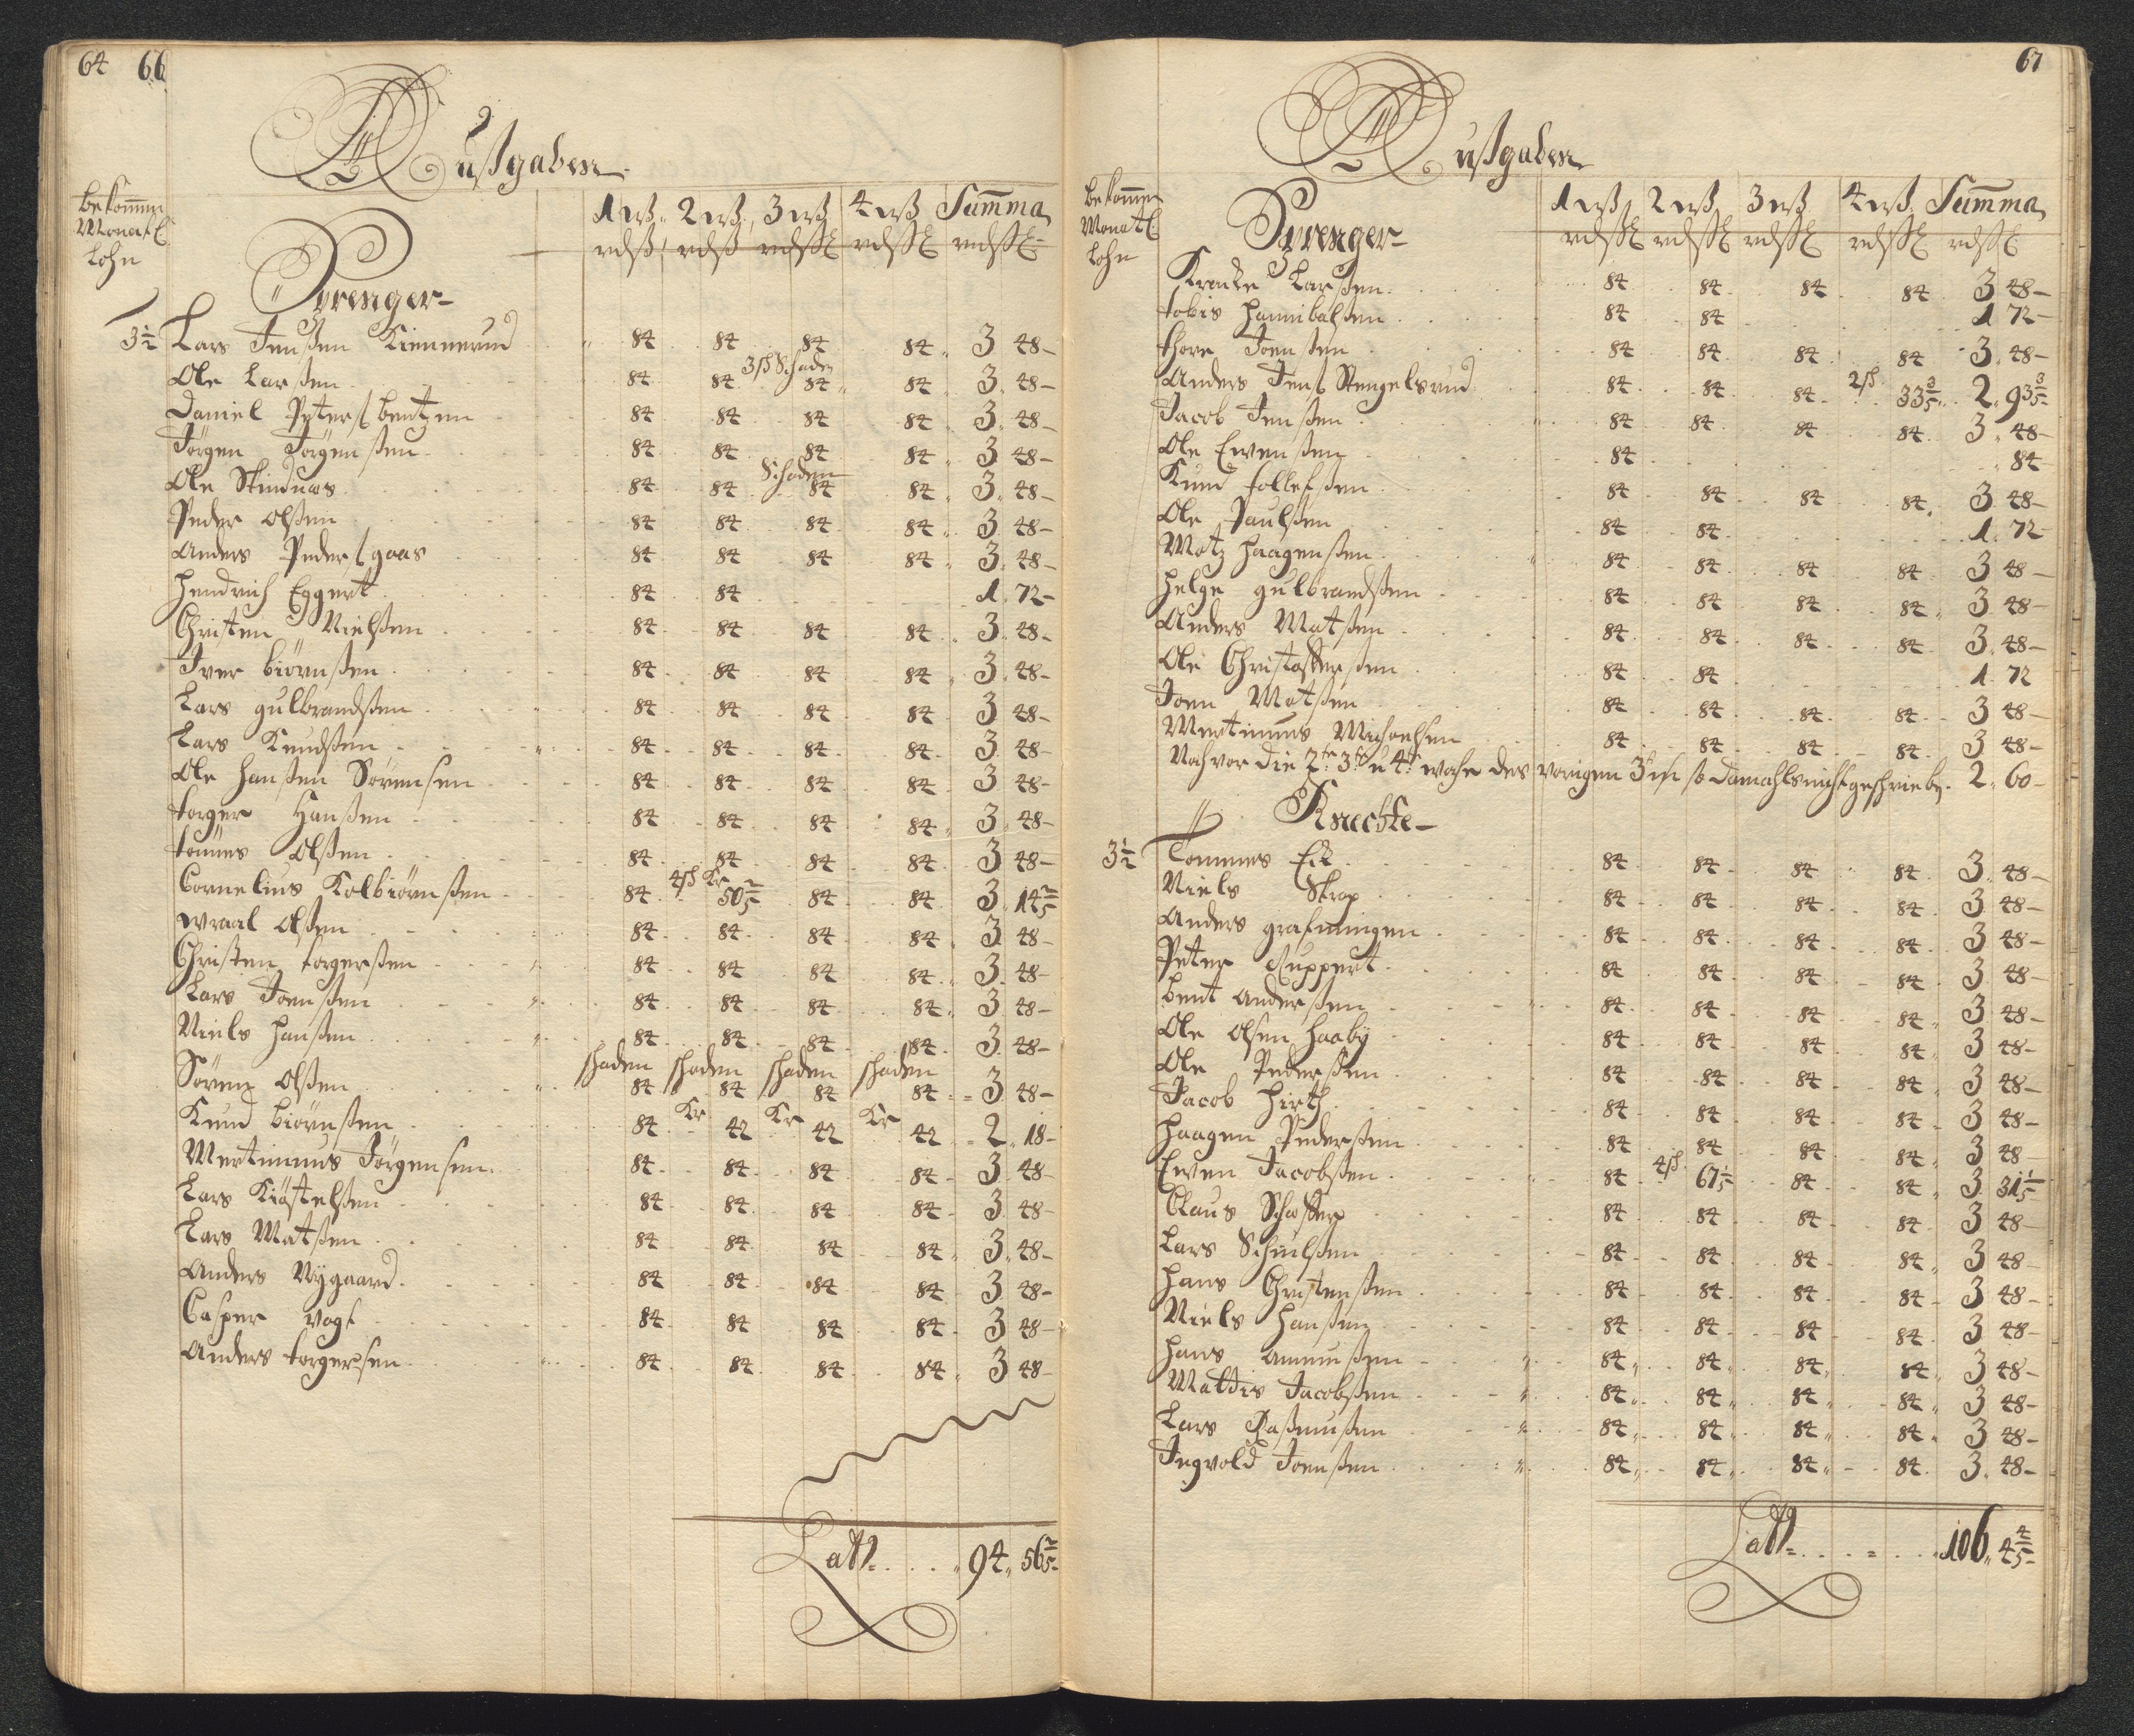 64 66
Außgaben
Bekommen
Monatl
Lohn
1 wß. 2 wß. 3 wß 4 wß Summa
rdß rdß rdßl rdßl rdßl
Sprenger
3½ Lars Jenßen Kiennerud 84 84 84 84 3 48
3 ß Schaden
Ole Larßen 84 84 84 84 3 48
Daniel Peterß Bentzen 84 84 84 84 3 48
Jörgen Jörgenßen 84 84 84 84 3 48
Schaden
Ole Skinduws 84 84 84 84 3 48
Peder Olßen 84 84 84 84 3 48
Anders Pederß gaas 84 84 84 84 3 48
Hendrich Eggert 84 84 1 72
Christen Nielßen 84 84 84 84 3 48
Iver Biörnßen 84 84 84 84 3 48
Lars gulbrandßen 84 84 84 84 3 48
Lars Knudßen 84 84 84 84 3 48
Ole Hanßen Sörensen 84 84 84 84 3 48
Torger Hanßen 84 84 84 84 3 48
Tönnes Olßen 84 84 84 84 3 48
4 ß Kr
Cornelius Kolbiörnßen 84 50 2/5 84 84 3 14 2/5
Wraal Olßen 84 84 84 84 3 48
Christen Torgerßen 84 84 84 84 3 48
Lars Joenßen 84 84 84 84 3 48
Niels Hanßen 84 84 84 84 3 48
schaden schaden schaden schaden
Sören Olßen 84 84 84 84 3 48
Kr Kr Kr
Knud Biörnßen 84 42 42 42 2 18
Mertinus Jörgensen 84 84 84 84 3 48
Lars Kiöstelßen 84 84 84 84 3 48
Lars Matßen 84 84 84 84 3 48
Anders Nygaard 84 84 84 84 3 48
Casper Vogt 84 84 84 84 3 48
Anders Torgersen 84 84 84 84 3 48
Latt 94 56 2/5
67
Außgaben
Bekommen
Monatl
Lohn
1 wß 2 wß 3 wß 4 wß Summa
rdßl rdßl rdßl rdßl rdßl
Sprenger
Kracke Larßen 84 84 84 84 3 48
Tobis Hannibalßen 84 84 1 72
Thore Joenßen 84 84 84 84 3 48
Anders Jenß Stengelsrud 84 84 84 2 ß 33 3/5 2 93 3/5
Jacob Jenßen 84 84 84 84 3 48
Ole Ewenßen 84 84
Knud Tollefßen 84 84 84 84 3 48
Ole Paulßen 84 84 1 72
Matz Haagenßen 84 84 84 84 3 48
Helge gulbrandßen 84 84 84 84 3 48
Anders Matßen 84 84 84 84 3 48
Ole Christofferßen 84 84 1 72
Joen Matßen 84 84 84 84 3 48
Mertinus Michaelsen 84 84 84 84 3 48
Noch vor die 2te 3te u 4te woche des vorigen so damahls nicht geschrieben 2 60
Knechte
3½ Tommes Eek 84 84 84 84 3 48
Niels Skrap 84 84 84 84 3 48
Anders grafningen 84 84 84 84 3 48
Peter Ruppert 84 84 84 84 3 48
Bent Anderßen 84 84 84 84 3 48
Ole Olsen Haaby 84 84 84 84 3 48
Ole Pederßen 84 84 84 84 3 48
Jacob Hirth 84 84 84 84 3 48
Haagen Pederßen 84 84 84 84 3 48
Ewen Jacobßen 84 4 ß 67 1/5 84 84 3 31 1/5
Claus Schöffer 84 84 84 84 3 48
Lars Schulßen 84 84 84 84 3 48
Hans Christenßen 84 84 84 84 3 48
Niels Hanßen 84 84 84 84 3 48
Hans Amunßen 84 84 84 84 3 48
Mattis Jacobßen 84 84 84 84 3 48
Lars Raßmußen 84 84 84 84 3 48
Ingvold Joenßen 84 84 84 84 3 48
Latt 106 4 4/5